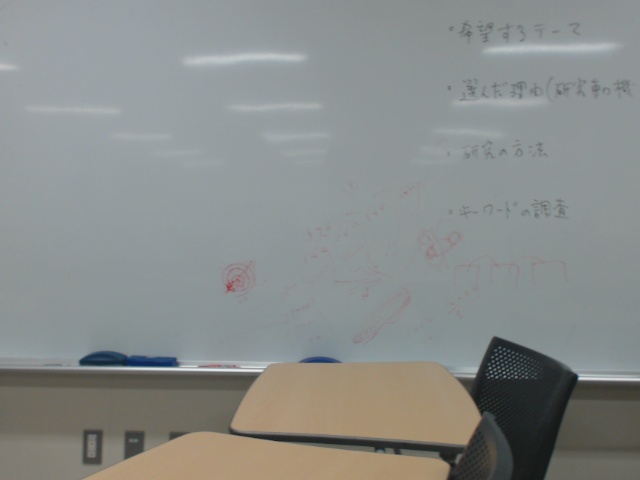 ・希望するテーマ
・選んだ理由(研究動機
・研究の方法
・キーワードの調査